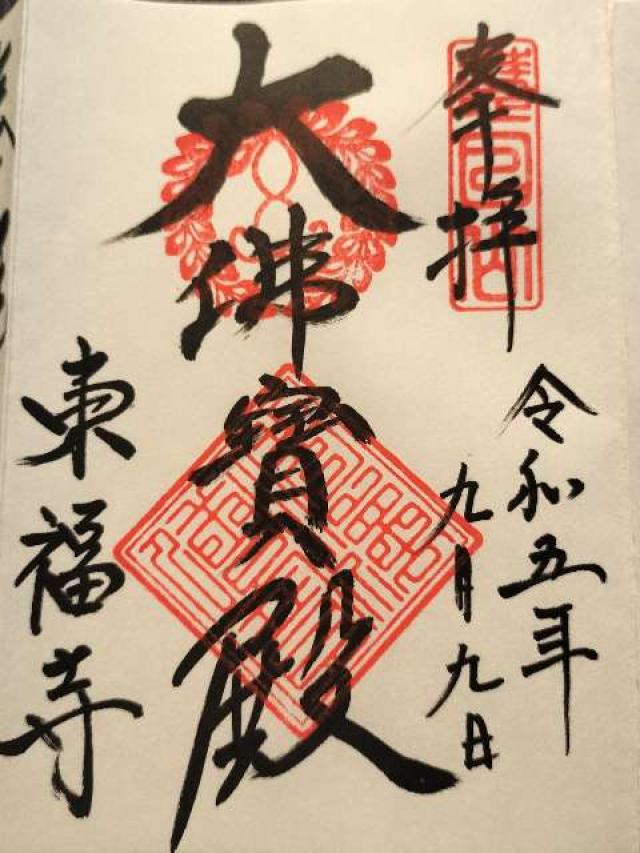 奉拝
令和五年
九月九日
大佛寶殿
東福寺